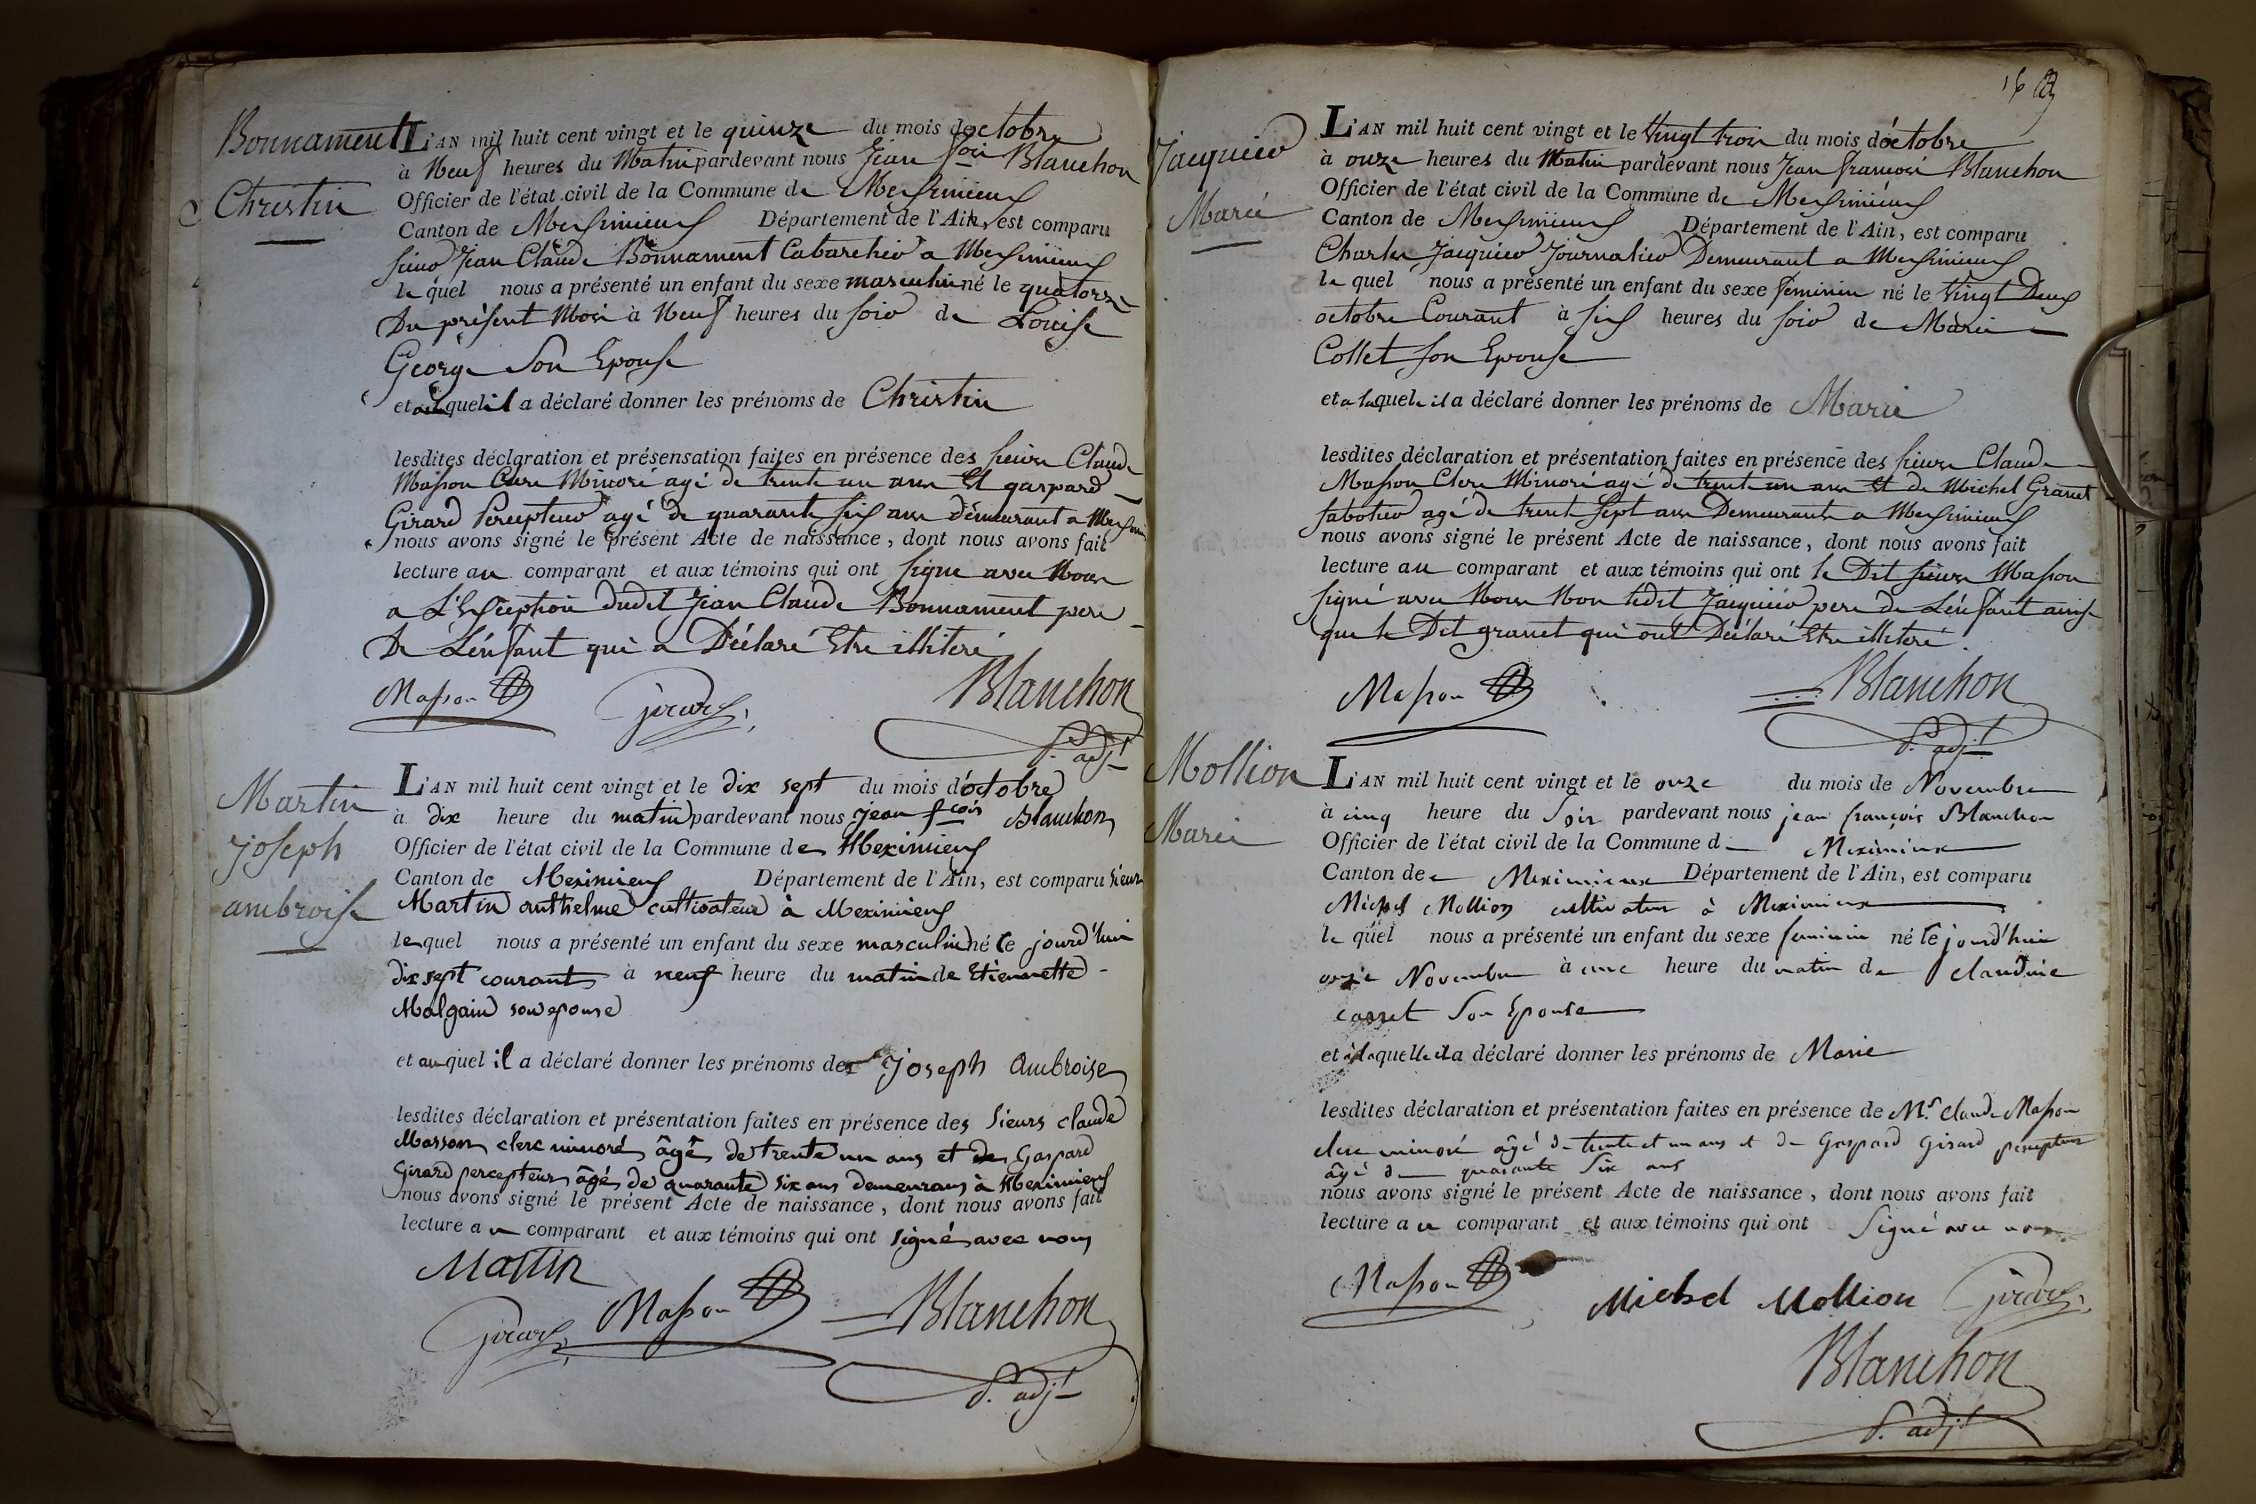 Bonnament
Christin
L'AN mil huit cent vingt et le quinze du mois d'octobre
à Neuf heures du Matin pardevant nous Jean fcois Blanchon
Officier de l'état civil de la Commune de Meximieux
Canton de Meximieux Département de l'Ain, est comparu
sieur Jean Claude Bonnament Cabaretier a Meximieux
le quel nous a présenté un enfant du sexe masculin né le quatorze
Du présent Mois à Neuf heures du soir de Louise
George Son Epouse
et auquel il a déclaré donner les prénoms de Christin
lesdites déclaration et présensation faites en présence des sieurs Claude
Masson Clerc Minoré agé de trente un ans Et gaspard
Girard Percepteur agé de quarante six ans demeurant a
nous avons signé le présent Acte de naissance, dont nous avons fait
lecture au comparant et aux témoins qui ont signé avec Nous
a L'Exception dudit Jean Claude Bonnament pere
De L'énfant qui a Déclaré Etre illiteré
Masson Girard Blanchon
adjt
Martin
joseph
ambroise
L'AN mil huit cent vingt et le dix sept du mois d'octobre
à dix heure du matin pardevant nous jean fcois Blanchon
Officier de l'état civil de la Commune de Meximieux
Canton de Meximieux Département de l'Ain, est comparu sieur
Martin anthelme cultivateur à Meximieux
lequel nous a présenté un enfant du sexe masculin né le jourd'hui
dix sept courant à neuf heure du matin de Etiennette
Malgain son epouse
et auquel il a déclaré donner les prénoms de joseph Ambroise
lesdites déclaration et présentation faites en présence des sieurs claude
Masson clerc minoré âgé de trente un ans et de Gaspard
Girard percepteur âgé de quarante six ans demeurans à Meximieux
nous avons signé le présent Acte de naissance, dont nous avons fait
lecture au comparant et aux témoins qui ont signé avec nous
Martin
Girard Masson Blanchon
adjt
Jacquier
Marie
L'AN mil huit cent vingt et le Vingt trois du mois d'octobre
à onze heures du Matin pardevant nous Jean francois Blanchon
Officier de l'état civil de la Commune de Meximieux
Canton de Meximieux Département de l'Ain, est comparu
Charles Jacquier Journalier Demeurant a Meximieux
le quel nous a présenté un enfant du sexe feminin né le Vingt Deux
octobre Courant à six heures du soir de Marie
Collet son Epouse
et a laquele il a déclaré donner les prénoms de Marie
lesdites déclaration et présentation faites en présence des sieurs Claude
Masson Clerc Minoré agé de trente un ans Et de Michel Granet
sabotier agé de trente sept ans Demeurants a Meximieux
nous avons signé le présent Acte de naissance, dont nous avons fait
lecture au comparant et aux témoins qui ont le Dit sieur Masson
signé avec Nous Non ledit Jacquier pere de L'énfant ainsi
que le Dit granet qui ont Déclaré Etre illiteré.
Masson Blanchon
adjt
Mollion
Marie
L'AN mil huit cent vingt et le onze du mois de Novembre
à cinq heure du Soir pardevant nous jean françois Blanchon
Officier de l'état civil de la Commune de Meximieux
Canton de Meximieux Département de l'Ain, est comparu
Michel Mollion cultivateur à Meximieux
le quel nous a présenté un enfant du sexe feminin né le jourd'hui
onze Novembre à une heure du matin de claudine
carret Son Epouse
et à laquelle il a déclaré donner les prénoms de Marie
lesdites déclaration et présentation faites en présence de Mr. Claude Masson
clerc minoré âgé de trente et un ans et de Gaspard Girard percepteur
âgé de quarante Six ans
nous avons signé le présent Acte de naissance, dont nous avons fait
lecture au comparant et aux témoins qui ont Signé avec nous.
Masson Michel Mollion Girard
Blanchon
adjt